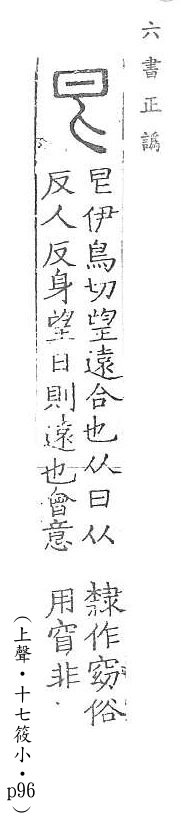 六書正譌
㫐伊鳥切望遠合也从日从
反人反身望日則遠也會意
隸作窈俗
用窅非
（上聲・十七筱小・p96）